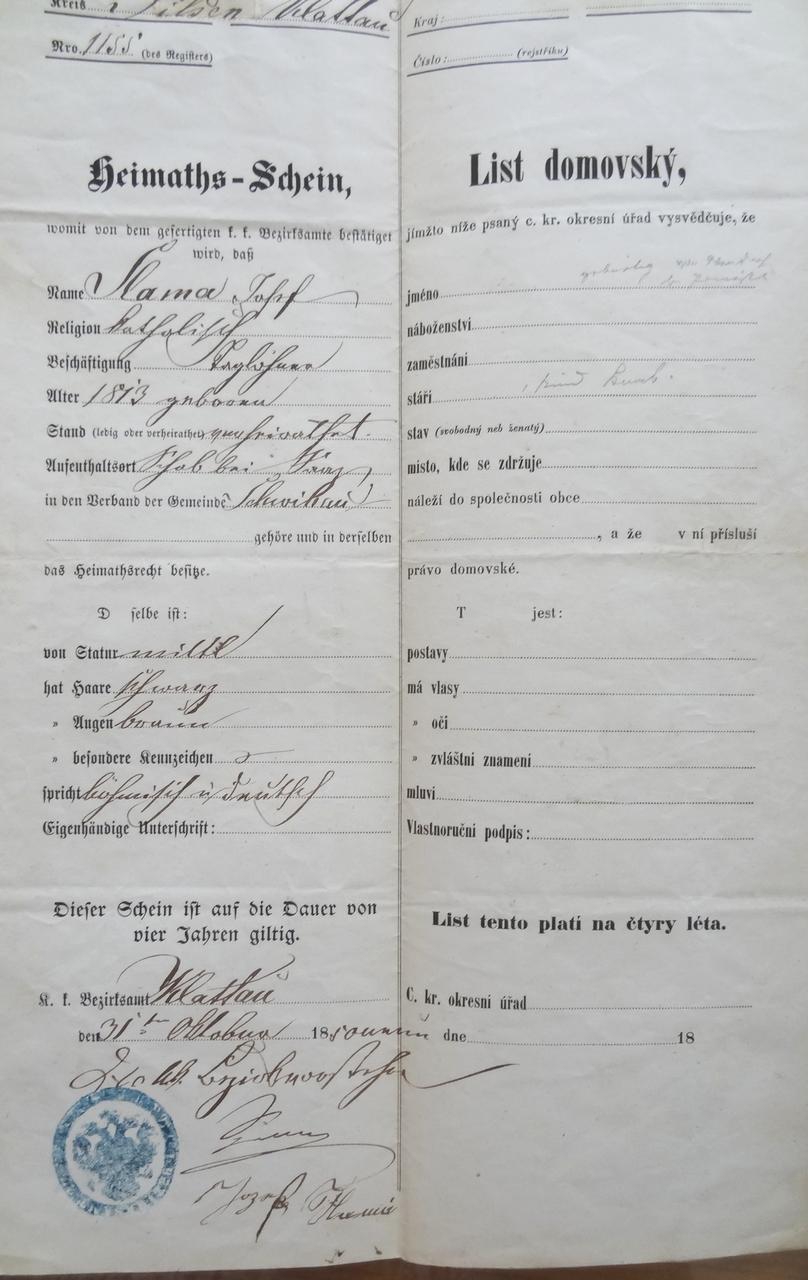 Kreis Pilsen Klattau
Nro. 1155 (des Registers)
Heimaths-Schein,
womit von dem gefertigten k. k. Bezirksamte bestätiget
wird, daß
Name Slama Josef
Religion katholisch
Beschäftigung Taglöhner
Alter 1813 geboren
Stand (ledig oder verheirathet) verheirathet.
Aufenthaltsort bei
in den Verband der Gemeinde Schwihau
gehöre und in derselben
das Heimathsrecht besitze.
D selbe ist:
von Statur mittl
hat Haare schwarz
» Augen braun
» besondere Kennzeichen
spricht böhmisch u deutsch
Eigenhändige Unterschrift:
Dieser Schein ist auf die Dauer von
vier Jahren giltig.
K. k. Bezirksamt Klattau
den 31ten Oktober 18
k.k. Bezirksvorsteher
Josef
Kraj:
Číslo: (rejstříku)
List domovský,
jímžto níže psaný c. kr. okresní úřad vysvědčuje, že
jméno
náboženství
zaměstnání
stáří
stav (svobodný neb ženatý)
místo, kde se zdržuje
náleží do společnosti obce
, a že v ní přísluší
právo domovské.
T jest:
postavy
má vlasy
» oči
» zvláštní znamení
mluví
Vlastnoruční podpis:
List tento platí na čtyry léta.
C. kr. okresní úřad
dne 18